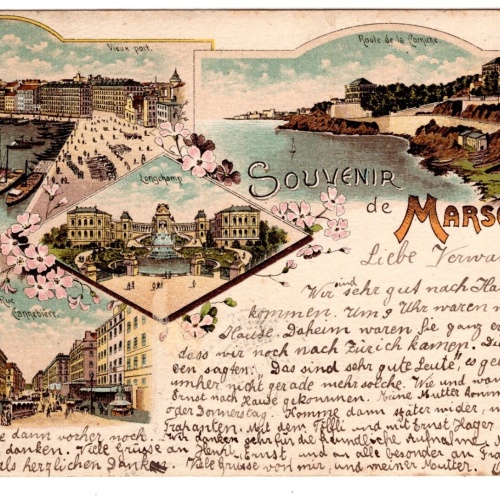 Vieux port.
Route de la Corniche.
Longchamp
SOUVENIR
de MARS
Rue Cannebière.
Liebe Verwan
Wir sind sehr gut nach Hau
kommen. Um 9 Uhr waren
Hause. Daheim waren Sie ganz
dass wir noch nach Zürich kamen. Di
en sagten: "Das sind sehr gute Leute", es ge
umher nicht gerade mehr solche. Wie und war
Ernst nach Hause gekommen. Meine Mutter komm
oder Donnerstag. Komme dann später wieder,
Mit dem und mit Ernst Hager
dann vorher noch. Wir danken sehr für die freundliche Aufnahme,
danken. Viele Grüsse an Ernst, und an alle besonder an
als herzlichen Danken. Viele Grüsse von mir, und meiner Mutter.